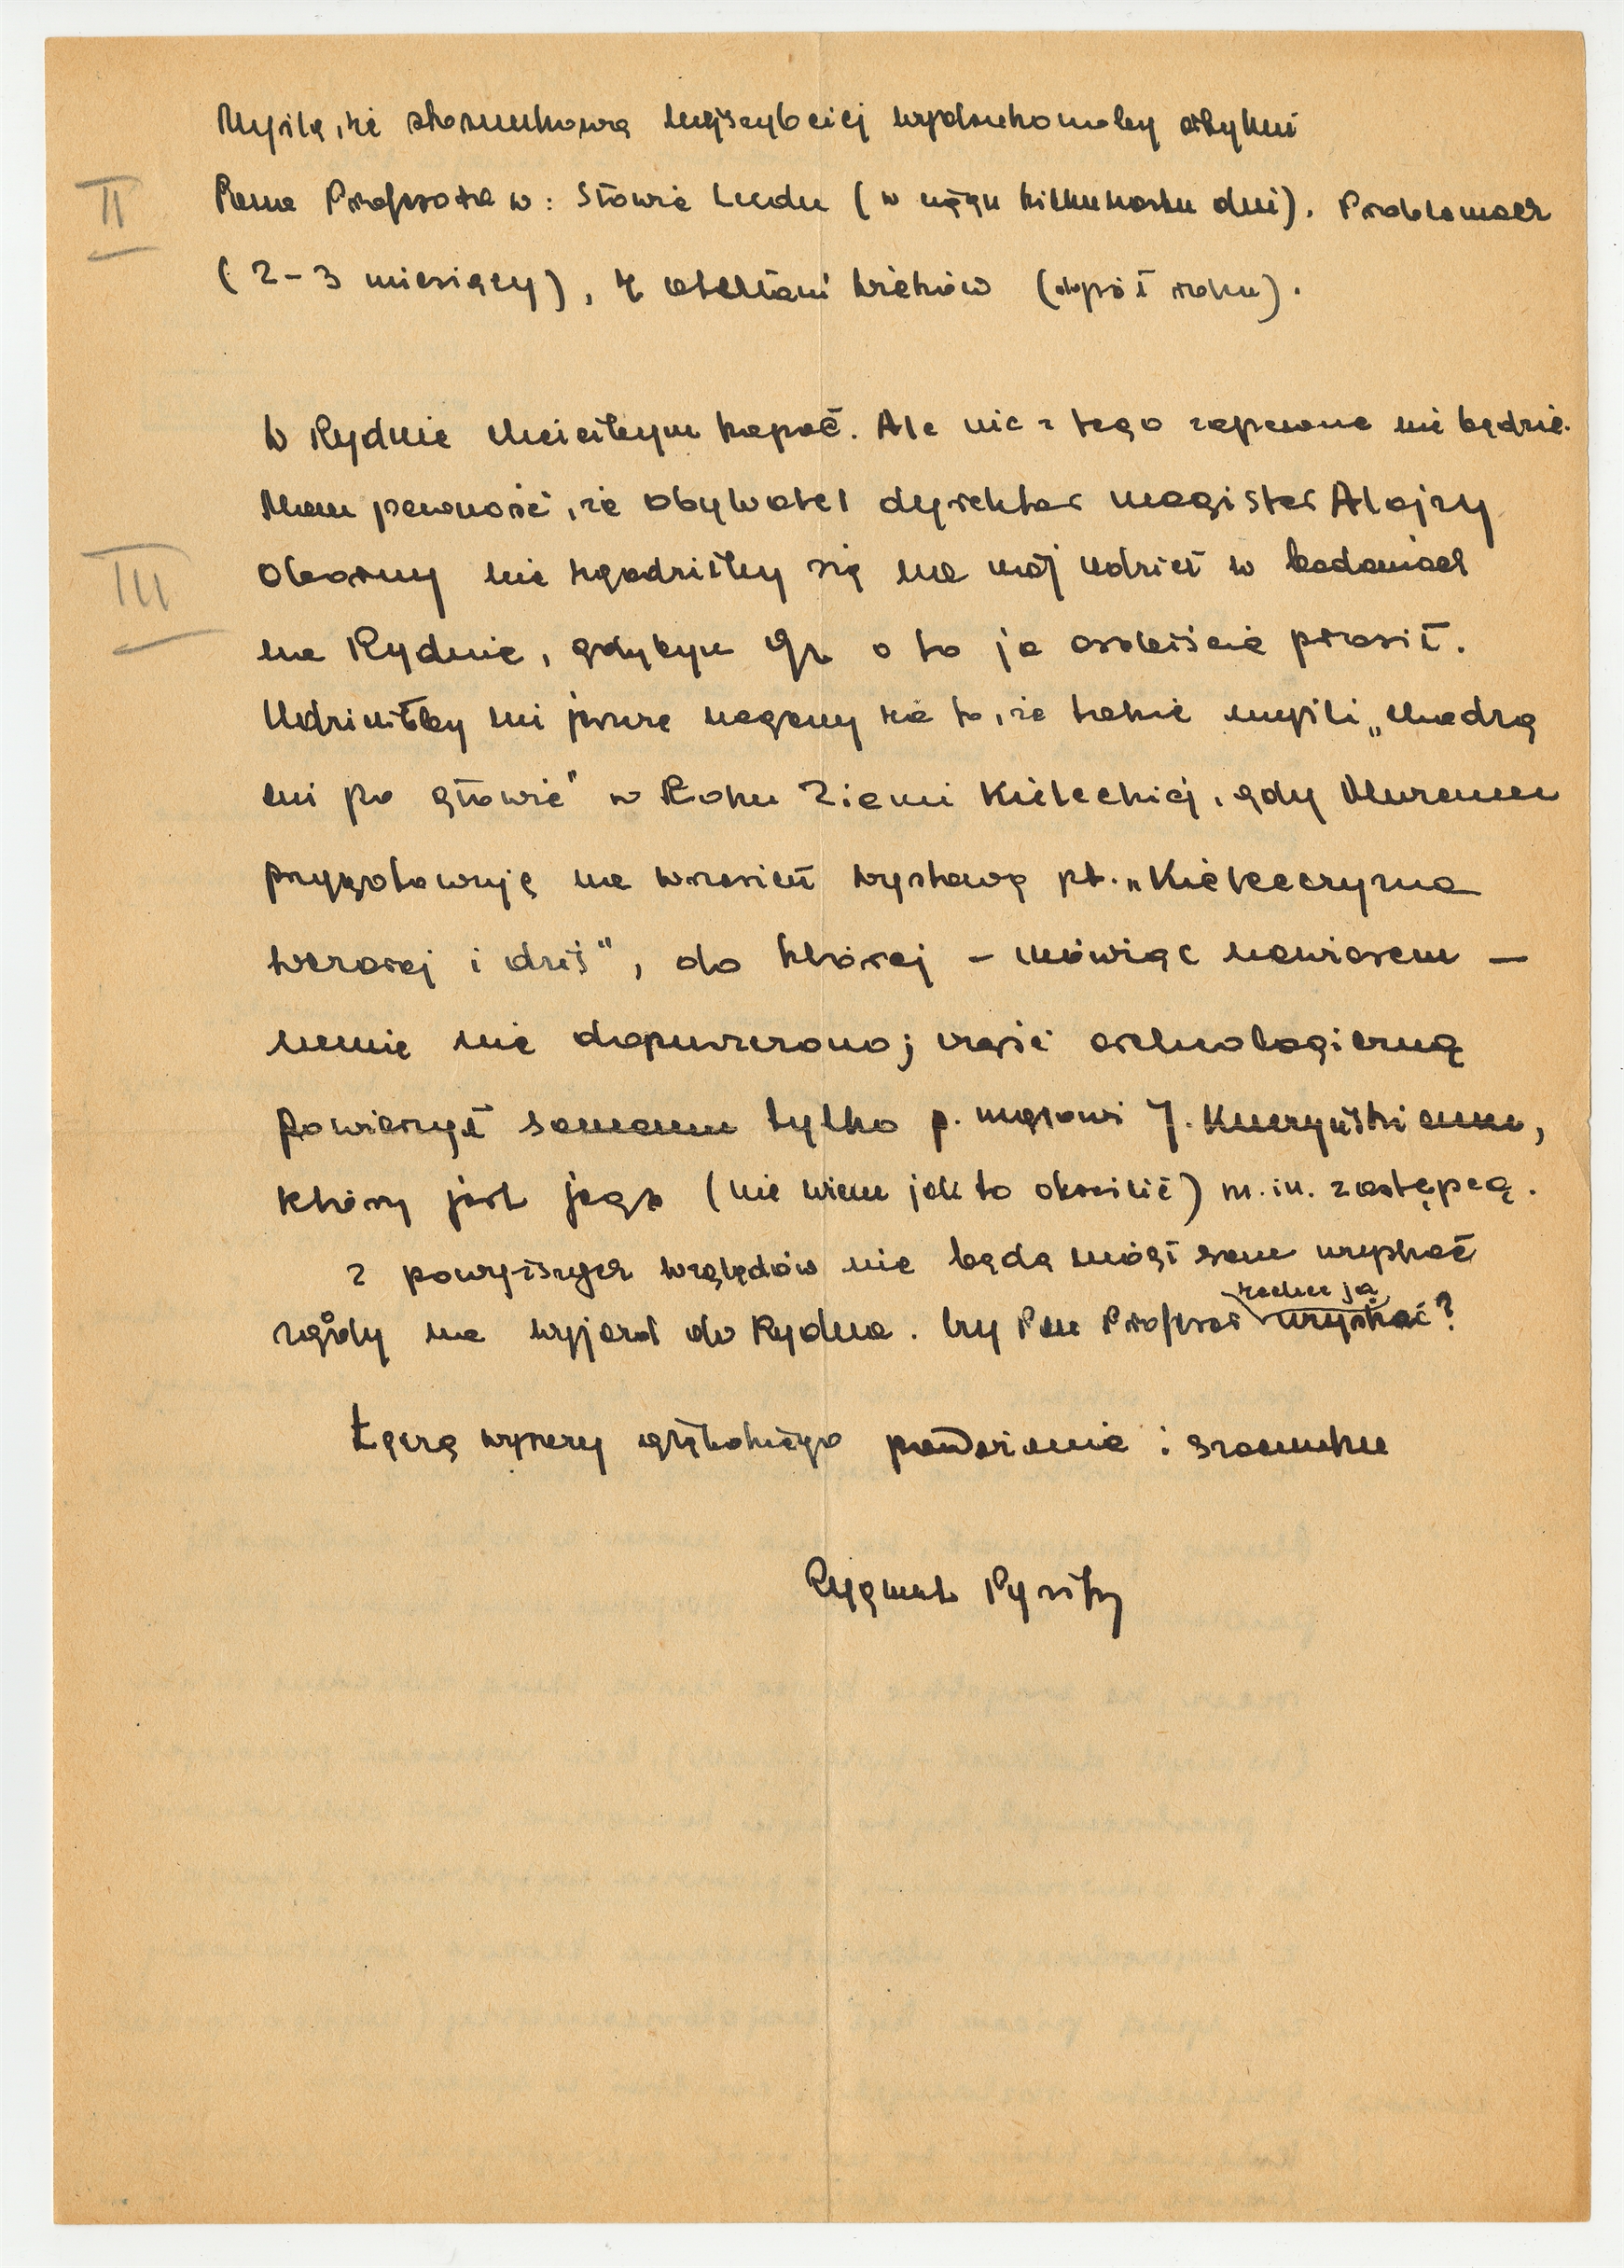 II
Myślę, że stosunkowo najszybciej wydrukowałby artykuł
Pana Profesora w: Słowie Ludu (w ciągu kilkunastu dni). Problemach
(2-3 miesięcy), Z otchłani wieków (do pół roku).
W Rydnie chciałbym kopać. Ale nic z tego zapewne nie będzie.
Mam pewność, że obywatel dyrektor magister Alojzy
III
Oborny nie zgodziłby się na mój udział w badaniach
na Rydnie, gdybym Go o to ja osobiście prosił.
Udzieliłby mi jeszcze nagany za to, że takie myśli „chodzą
mi po głowie" w Roku Ziemi Kieleckiej, gdy Muzeum
przygotowuje na wrzesień wystawę pt. „Kielecczyzna
wczoraj i dziś", do której – mówiąc nawiasem –
mnie nie dopuszczono; część archeologiczną
powierzył samemu tylko p. mgrowi J. Kuczyńskiemu,
który jest jego (nie wiem jak to określić) m.in. zastępcą.
Z powyższych względów nie będę mógł sam uzyskać
zgody na wyjazd do Rydna. Czy Pan Profesor zechce ją uzyskać?
Łączę wyrazy głębokiego poważania i szacunku
Zygmunt Pyzik